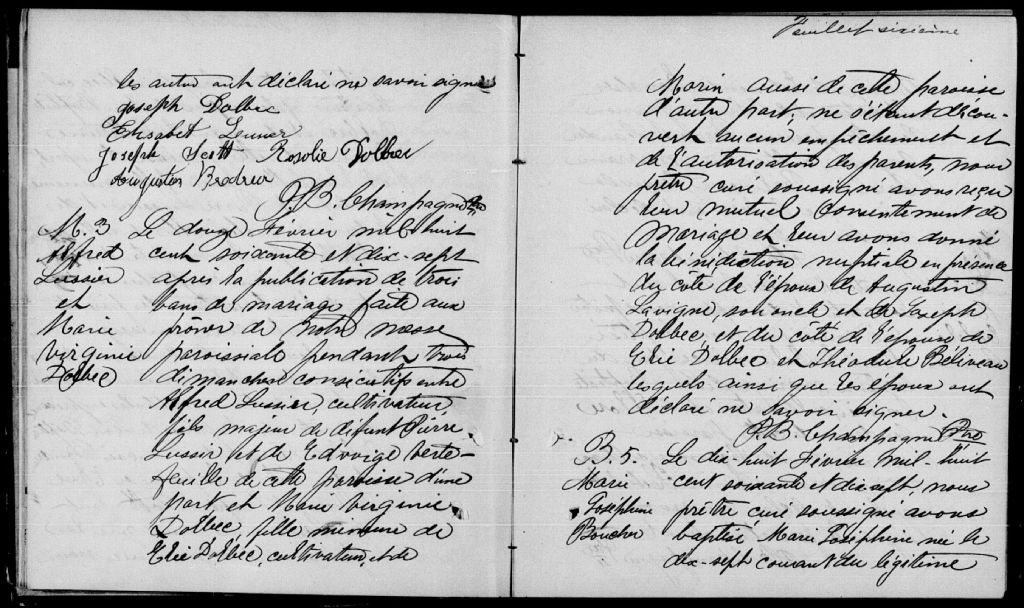 les autres ont déclaré ne savoir signer
Joseph Dolbec
Elisabet
Joseph Scott Rosolie Dolbec
Augustin
P.B. Champagne Ptre
M. 3
Alfred
Lussier
et
Marie
Virginie
Dolbec
Le douze Février mil huit
cent soixante et dix-sept
après la publication de trois
bans de mariage faite aux
prônes de notre messe
paroissiale pendant trois
dimanches consécutifs entre
Alfred Lussier, cultivateur,
fils majeur de défunt Pierre
Lussier et de Edvoige Verte-
feuille de cette paroisse d'une
part et Marie Virginie
Dolbec fille mineure de
Elie Dolbec, cultivateur, et de
Feuillet sixième
Morin aussi de cette paroisse
d'autre part; ne s'étant décou-
vert aucun empêchement et
de l'autorisation des parents, nous
prêtre curé soussigné avons reçu
leur mutuel consentement de
mariage et leur avons donné
la bénédiction nuptiale en présence
du côté de l'époux de Augustin
Lavigne, son oncle et de Joseph
Dolbec, et du côté de l'épouse de
Elie Dolbec et Théodule Béliveau
lesquels ainsi que les époux ont
déclaré ne savoir signer.
P.B. Champagne Ptre
B. 5.
Marie
Joséphine
Boucher
Le dix-huit Février mil-huit
cent soixante et dix sept, nous
prêtre curé soussigné avons
baptisé Marie Joséphine née le
dix-sept courant du légitime